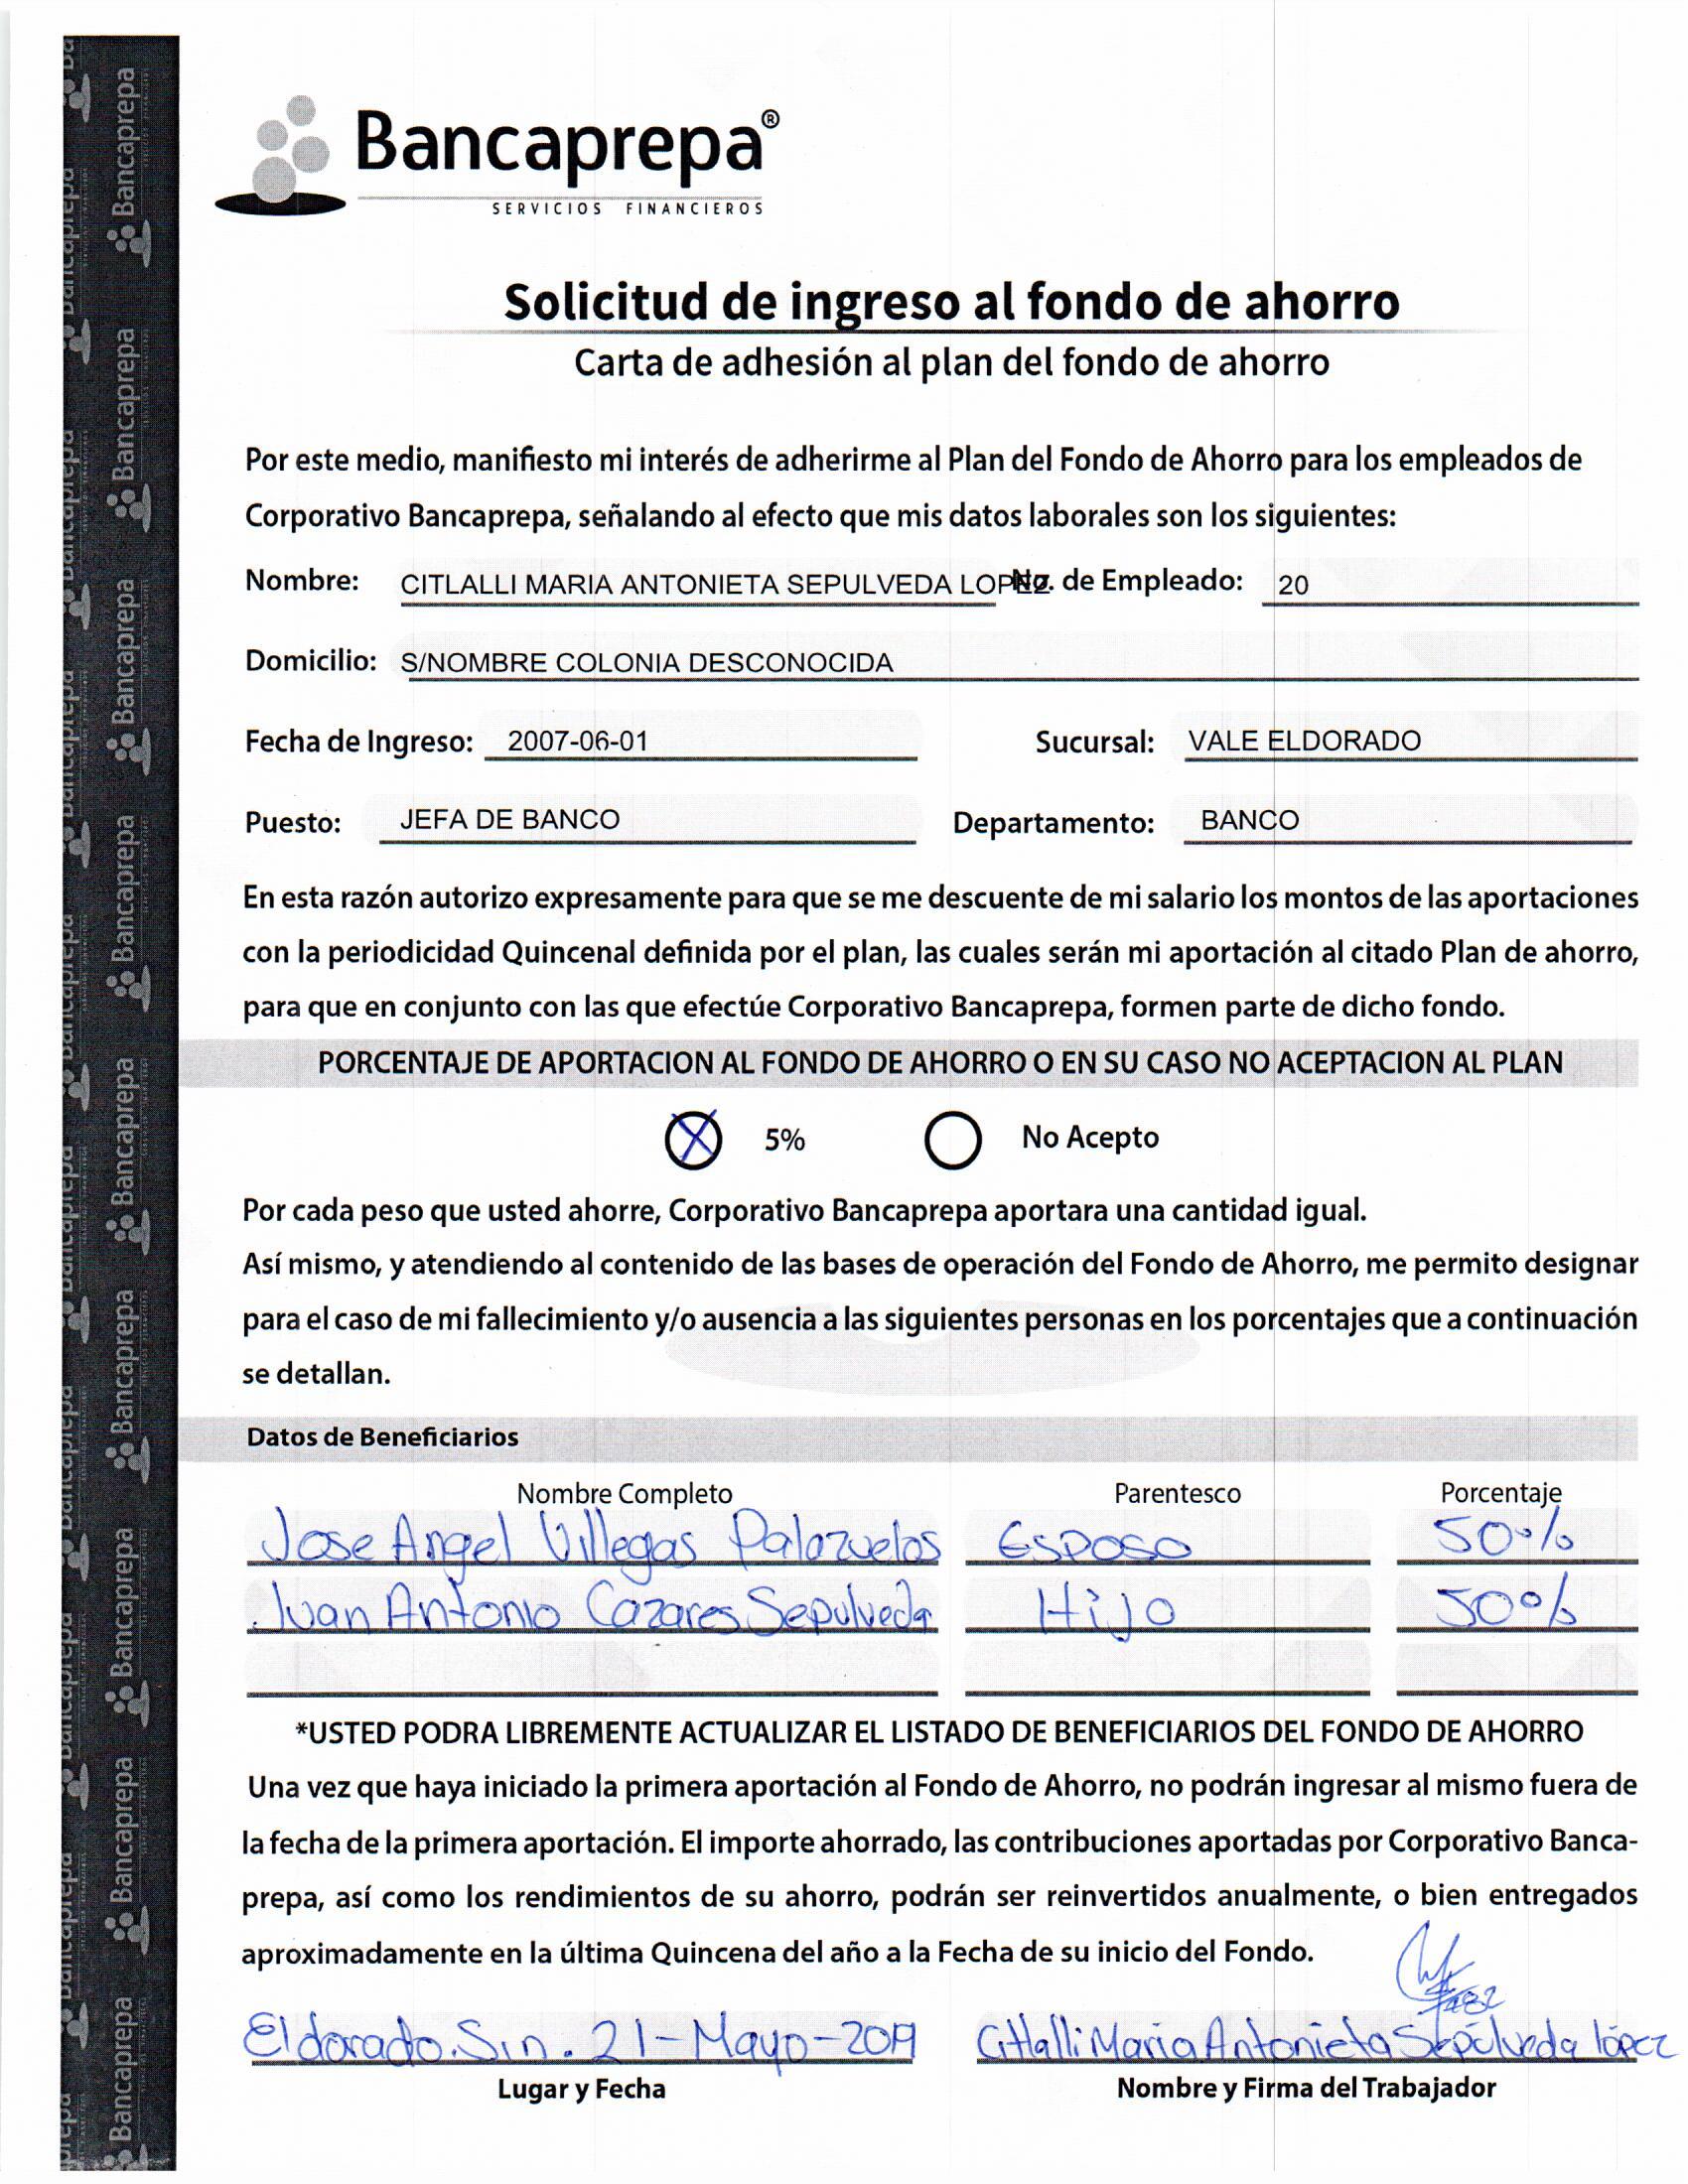 Bancaprepa®
SERVICIOS FINANCIEROS
Solicitud de ingreso al fondo de ahorro
Carta de adhesión al plan del fondo de ahorro
Por este medio, manifiesto mi interés de adherirme al Plan del Fondo de Ahorro para los empleados de
Corporativo Bancaprepa, señalando al efecto que mis datos laborales son los siguientes:
Nombre: CITLALLI MARIA ANTONIETA SEPULVEDA LOPEZ No. de Empleado: 20
Domicilio: S/NOMBRE COLONIA DESCONOCIDA
Fecha de Ingreso: 2007-06-01 Sucursal: VALE ELDORADO
Puesto: JEFA DE BANCO Departamento: BANCO
En esta razón autorizo expresamente para que se me descuente de mi salario los montos de las aportaciones
con la periodicidad Quincenal definida por el plan, las cuales serán mi aportación al citado Plan de ahorro,
para que en conjunto con las que efectúe Corporativo Bancaprepa, formen parte de dicho fondo.
PORCENTAJE DE APORTACION AL FONDO DE AHORRO O EN SU CASO NO ACEPTACION AL PLAN
X 5% No Acepto
Por cada peso que usted ahorre, Corporativo Bancaprepa aportara una cantidad igual.
Así mismo, y atendiendo al contenido de las bases de operación del Fondo de Ahorro, me permito designar
para el caso de mi fallecimiento y/o ausencia a las siguientes personas en los porcentajes que a continuación
se detallan.
Datos de Beneficiarios
Nombre Completo Parentesco Porcentaje
Jose Angel Villegas Palazuelos Esposo 50%
Juan Antonio Cazares Sepulveda Hijo 50%
*USTED PODRA LIBREMENTE ACTUALIZAR EL LISTADO DE BENEFICIARIOS DEL FONDO DE AHORRO
Una vez que haya iniciado la primera aportación al Fondo de Ahorro, no podrán ingresar al mismo fuera de
la fecha de la primera aportación. El importe ahorrado, las contribuciones aportadas por Corporativo Banca-
prepa, así como los rendimientos de su ahorro, podrán ser reinvertidos anualmente, o bien entregados
aproximadamente en la última Quincena del año a la Fecha de su inicio del Fondo.
Eldorado. Sin. 21-Mayo-2019 Citlalli Maria Antonieta Sepúlveda lópez
Lugar y Fecha Nombre y Firma del Trabajador